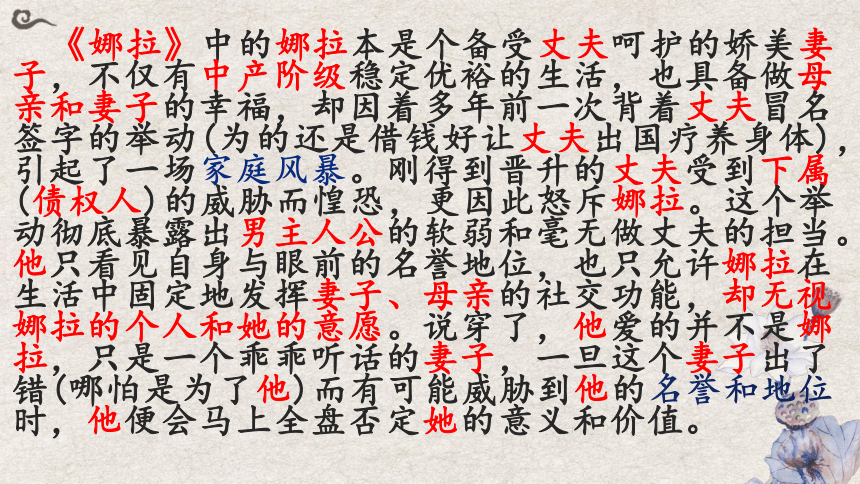 《娜拉》中的娜拉本是个备受丈夫呵护的娇美妻
子，不仅有中产阶级稳定优裕的生活，也具备做母
亲和妻子的幸福，却因着多年前一次背着丈夫冒名
签字的举动(为的还是借钱好让丈夫出国疗养身体)，
引起了一场家庭风暴。刚得到晋升的丈夫受到下属
(债权人)的威胁而惶恐，更因此怒斥娜拉。这个举
动彻底暴露出男主人公的软弱和毫无做丈夫的担当。
他只看见自身与眼前的名誉地位，也只允许娜拉在
生活中固定地发挥妻子、母亲的社交功能，却无视
娜拉的个人和她的意愿。说穿了，他爱的并不是娜
拉，只是一个乖乖听话的妻子，一旦这个妻子出了
错(哪怕是为了他)而有可能威胁到他的名誉和地位
时，他便会马上全盘否定她的意义和价值。